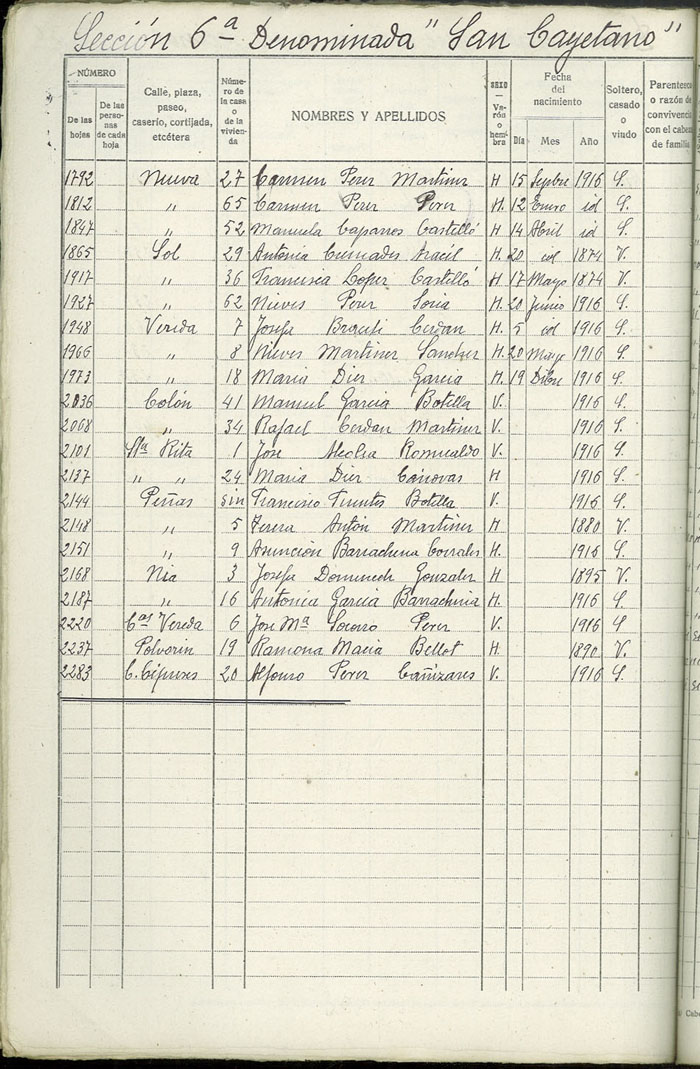 Sección 6ª Denominada "San Cayetano"
NÚMERO
De las hojas
De las personas de cada hoja
Calle, plaza, paseo, caserío, cortijada, etcétera
Número de la casa o de la vivienda
NOMBRES Y APELLIDOS
SEXO — Varón o hembra
Fecha del nacimiento
Día Mes Año
Soltero, casado o viudo
Parentesco o razón de convivencia con el cabeza de familia
1792 Nueva 27 Carmen Perez Martinez H 15 Sepbre 1916 S.
1812 " 65 Carmen Perez Perez H. 12 Enero id S.
1847 " 52 Manuela Caparros Castelló H 14 Abril id S.
1865 Sol 29 Antonia Cremades Aracil H. 20 id 1874 V.
1917 " 36 Francisca Lopez Castelló H 17 Mayo 1874 V.
1927 " 62 Nieves Perez Soria H. 20 Junio 1916 S.
1948 Vereda 7 Josefa Cerdan H. 5 id 1916 S.
1966 " 8 Nieves Martinez Sanchez H. 20 Mayo 1916 S.
1973 " 18 Maria Diez Garcia H. 19 Dibre 1916 S.
2036 Colón 41 Manuel Garcia Botella V. 1916 S.
2068 " 34 Rafael Cerdan Martinez V. 1916 S.
2101 Sta Rita 1 Jose Alcolea Romualdo V. 1916 S.
2137 " " 24 Maria Diez Cánovas H 1916 S.
2144 Peñas sin Francisco Fuentes Botella V. 1916 S.
2148 " 5 Teresa Antón Martinez H 1880 V.
2151 " 9 Asunción Barrachina Corrales H. 1916 S.
2168 Nia 3 Josefa Domenech Gonzalez H 1895 V.
2187 " 16 Antonia Garcia Barrachina H. 1916 S.
2220 Cas Vereda 6 Jose Mª Socorro Perez V. 1916 S.
2237 Polvorin 19 Ramona Macia Bellot H. 1890 V.
2283 C. Cipreses 20 Alfonso Perez Cañizares V. 1916 S.